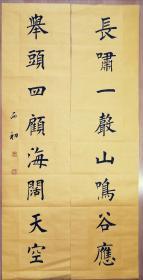 長嘯一聲山鳴谷應
舉頭四顧海闊天空